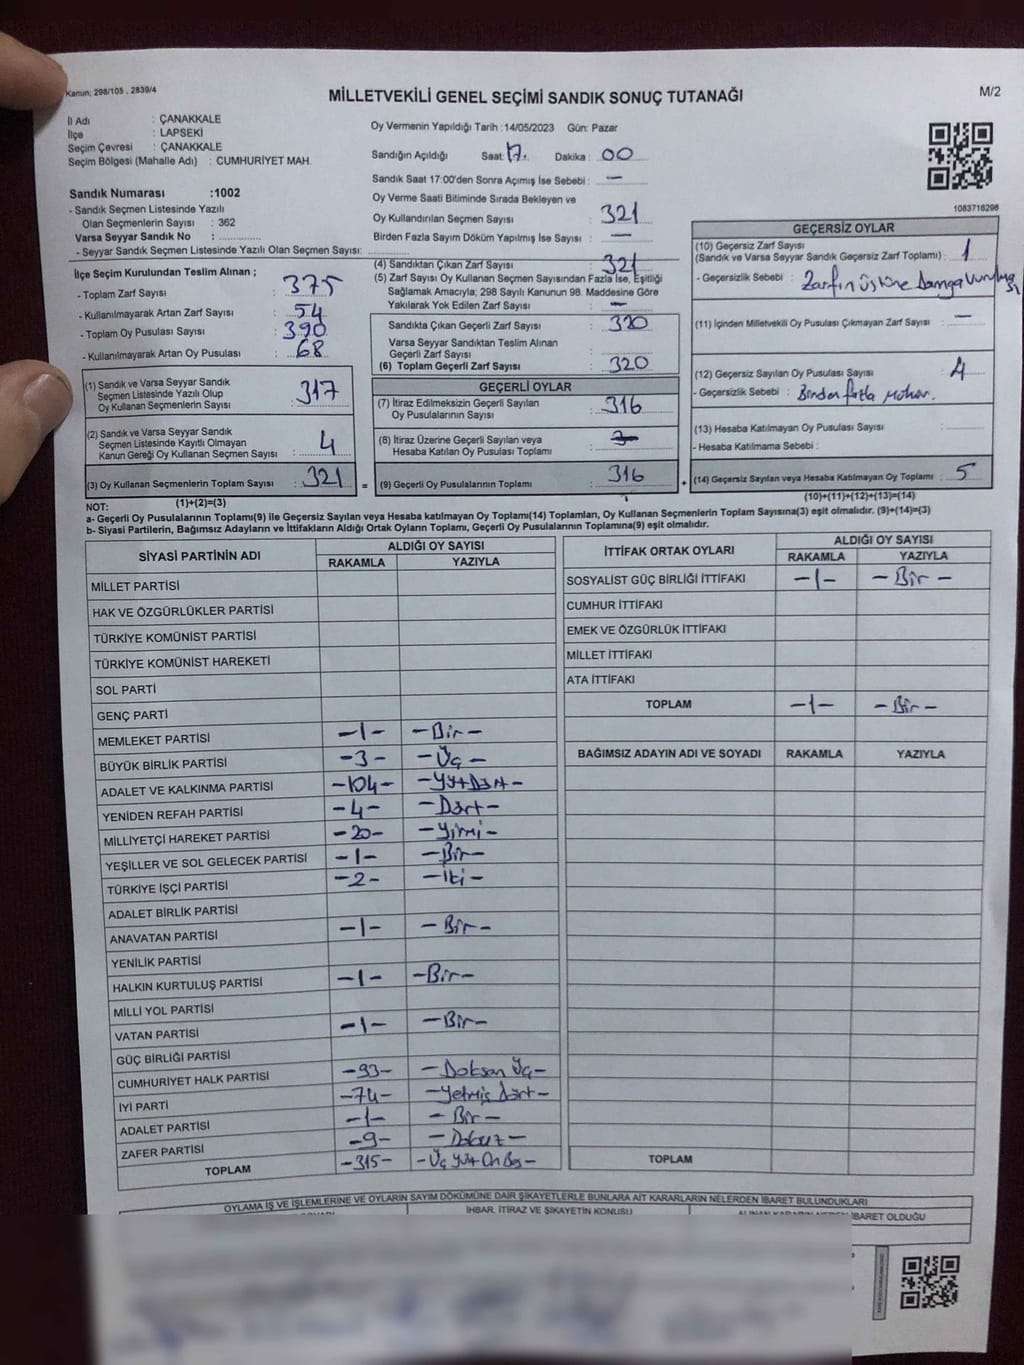 Kanun; 298/105 , 2839/4
MİLLETVEKİLİ GENEL SEÇİMİ SANDIK SONUÇ TUTANAĞI
M/2
İl Adı : ÇANAKKALE
İlçe : LAPSEKİ
Seçim Çevresi : ÇANAKKALE
Seçim Bölgesi (Mahalle Adı) : CUMHURİYET MAH.
Sandık Numarası :1002
- Sandık Seçmen Listesinde Yazılı
Olan Seçmenlerin Sayısı : 362
Varsa Seyyar Sandık No : ..............
- Seyyar Sandık Seçmen Listesinde Yazılı Olan Seçmen Sayısı: ..............
İlçe Seçim Kurulundan Teslim Alınan ;
- Toplam Zarf Sayısı : 375
- Kullanılmayarak Artan Zarf Sayısı : 54
- Toplam Oy Pusulası Sayısı : 390
- Kullanılmayarak Artan Oy Pusulası : 68
(1) Sandık ve Varsa Seyyar Sandık
Seçmen Listesinde Yazılı Olup
Oy Kullanan Seçmenlerin Sayısı : 317
(2) Sandık ve Varsa Seyyar Sandık
Seçmen Listesinde Kayıtlı Olmayan
Kanun Gereği Oy Kullanan Seçmen Sayısı : 4
(3) Oy Kullanan Seçmenlerin Toplam Sayısı : 321
(1)+(2)=(3)
Oy Vermenin Yapıldığı Tarih :14/05/2023 Gün: Pazar
Sandığın Açıldığı Saat: 17. Dakika : 00
Sandık Saat 17:00'den Sonra Açımış İse Sebebi : —
Oy Verme Saati Bitiminde Sırada Bekleyen ve
Oy Kullandırılan Seçmen Sayısı : 321
Birden Fazla Sayım Döküm Yapılmış İse Sayısı : —
(4) Sandıktan Çıkan Zarf Sayısı : 321
(5) Zarf Sayısı Oy Kullanan Seçmen Sayısından Fazla İse, Eşitliği
Sağlamak Amacıyla; 298 Sayılı Kanunun 98. Maddesine Göre
Yakılarak Yok Edilen Zarf Sayısı : —
Sandıkta Çıkan Geçerli Zarf Sayısı : 320
Varsa Seyyar Sandıktan Teslim Alınan
Geçerli Zarf Sayısı :
(6) Toplam Geçerli Zarf Sayısı : 320
GEÇERLİ OYLAR
(7) İtiraz Edilmeksizin Geçerli Sayılan
Oy Pusulalarının Sayısı : 316
(8) İtiraz Üzerine Geçerli Sayılan veya
Hesaba Katılan Oy Pusulası Toplamı :
= (9) Geçerli Oy Pusulalarının Toplamı : 316
1083716298
GEÇERSİZ OYLAR
(10) Geçersiz Zarf Sayısı
(Sandık ve Varsa Seyyar Sandık Geçersiz Zarf Toplamı) : 1
- Geçersizlik Sebebi : Zarfın üstüne Damga Vurulması
(11) İçinden Milletvekili Oy Pusulası Çıkmayan Zarf Sayısı : —
(12) Geçersiz Sayılan Oy Pusulası Sayısı : 4
- Geçersizlik Sebebi : Birden fazla Mühür.
(13) Hesaba Katılmayan Oy Pusulası Sayısı :
- Hesaba Katılmama Sebebi :
+ (14) Geçersiz Sayılan veya Hesaba Katılmayan Oy Toplamı : 5
(10)+(11)+(12)+(13)=(14)
NOT:
a- Geçerli Oy Pusulalarının Toplamı(9) ile Geçersiz Sayılan veya Hesaba katılmayan Oy Toplamı(14) Toplamları, Oy Kullanan Seçmenlerin Toplam Sayısına(3) eşit olmalıdır. (9)+(14)=(3)
b- Siyasi Partilerin, Bağımsız Adayların ve İttifakların Aldığı Ortak Oyların Toplamı, Geçerli Oy Pusulalarının Toplamına(9) eşit olmalıdır.
SİYASİ PARTİNİN ADI ALDIĞI OY SAYISI
RAKAMLA YAZIYLA
MİLLET PARTİSİ
HAK VE ÖZGÜRLÜKLER PARTİSİ
TÜRKİYE KOMÜNİST PARTİSİ
TÜRKİYE KOMÜNİST HAREKETİ
SOL PARTİ
GENÇ PARTİ
MEMLEKET PARTİSİ -1- -Bir-
BÜYÜK BİRLİK PARTİSİ -3- -Üç-
ADALET VE KALKINMA PARTİSİ -104- -YüzDört-
YENİDEN REFAH PARTİSİ -4- -Dört-
MİLLİYETÇİ HAREKET PARTİSİ -20- -Yirmi-
YEŞİLLER VE SOL GELECEK PARTİSİ -1- -Bir-
TÜRKİYE İŞÇİ PARTİSİ -2- -İki-
ADALET BİRLİK PARTİSİ
ANAVATAN PARTİSİ -1- -Bir-
YENİLİK PARTİSİ
HALKIN KURTULUŞ PARTİSİ -1- -Bir-
MİLLİ YOL PARTİSİ
VATAN PARTİSİ -1- -Bir-
GÜÇ BİRLİĞİ PARTİSİ
CUMHURİYET HALK PARTİSİ -93- -Doksan Üç-
İYİ PARTİ -74- -Yetmiş Dört-
ADALET PARTİSİ -1- -Bir-
ZAFER PARTİSİ -9- -Dokuz-
TOPLAM -315- -Üç Yüz On Beş-
İTTİFAK ORTAK OYLARI ALDIĞI OY SAYISI
RAKAMLA YAZIYLA
SOSYALİST GÜÇ BİRLİĞİ İTTİFAKI -1- -Bir-
CUMHUR İTTİFAKI
EMEK VE ÖZGÜRLÜK İTTİFAKI
MİLLET İTTİFAKI
ATA İTTİFAKI
TOPLAM -1- -Bir-
BAĞIMSIZ ADAYIN ADI VE SOYADI RAKAMLA YAZIYLA
TOPLAM
OYLAMA İŞ VE İŞLEMLERİNE VE OYLARIN SAYIM DÖKÜMÜNE DAİR ŞİKAYETLERLE BUNLARA AİT KARARLARIN NELERDEN İBARET BULUNDUKLARI
İHBAR, İTİRAZ VE ŞİKAYETİN KONUSU
İBARET OLDUĞU